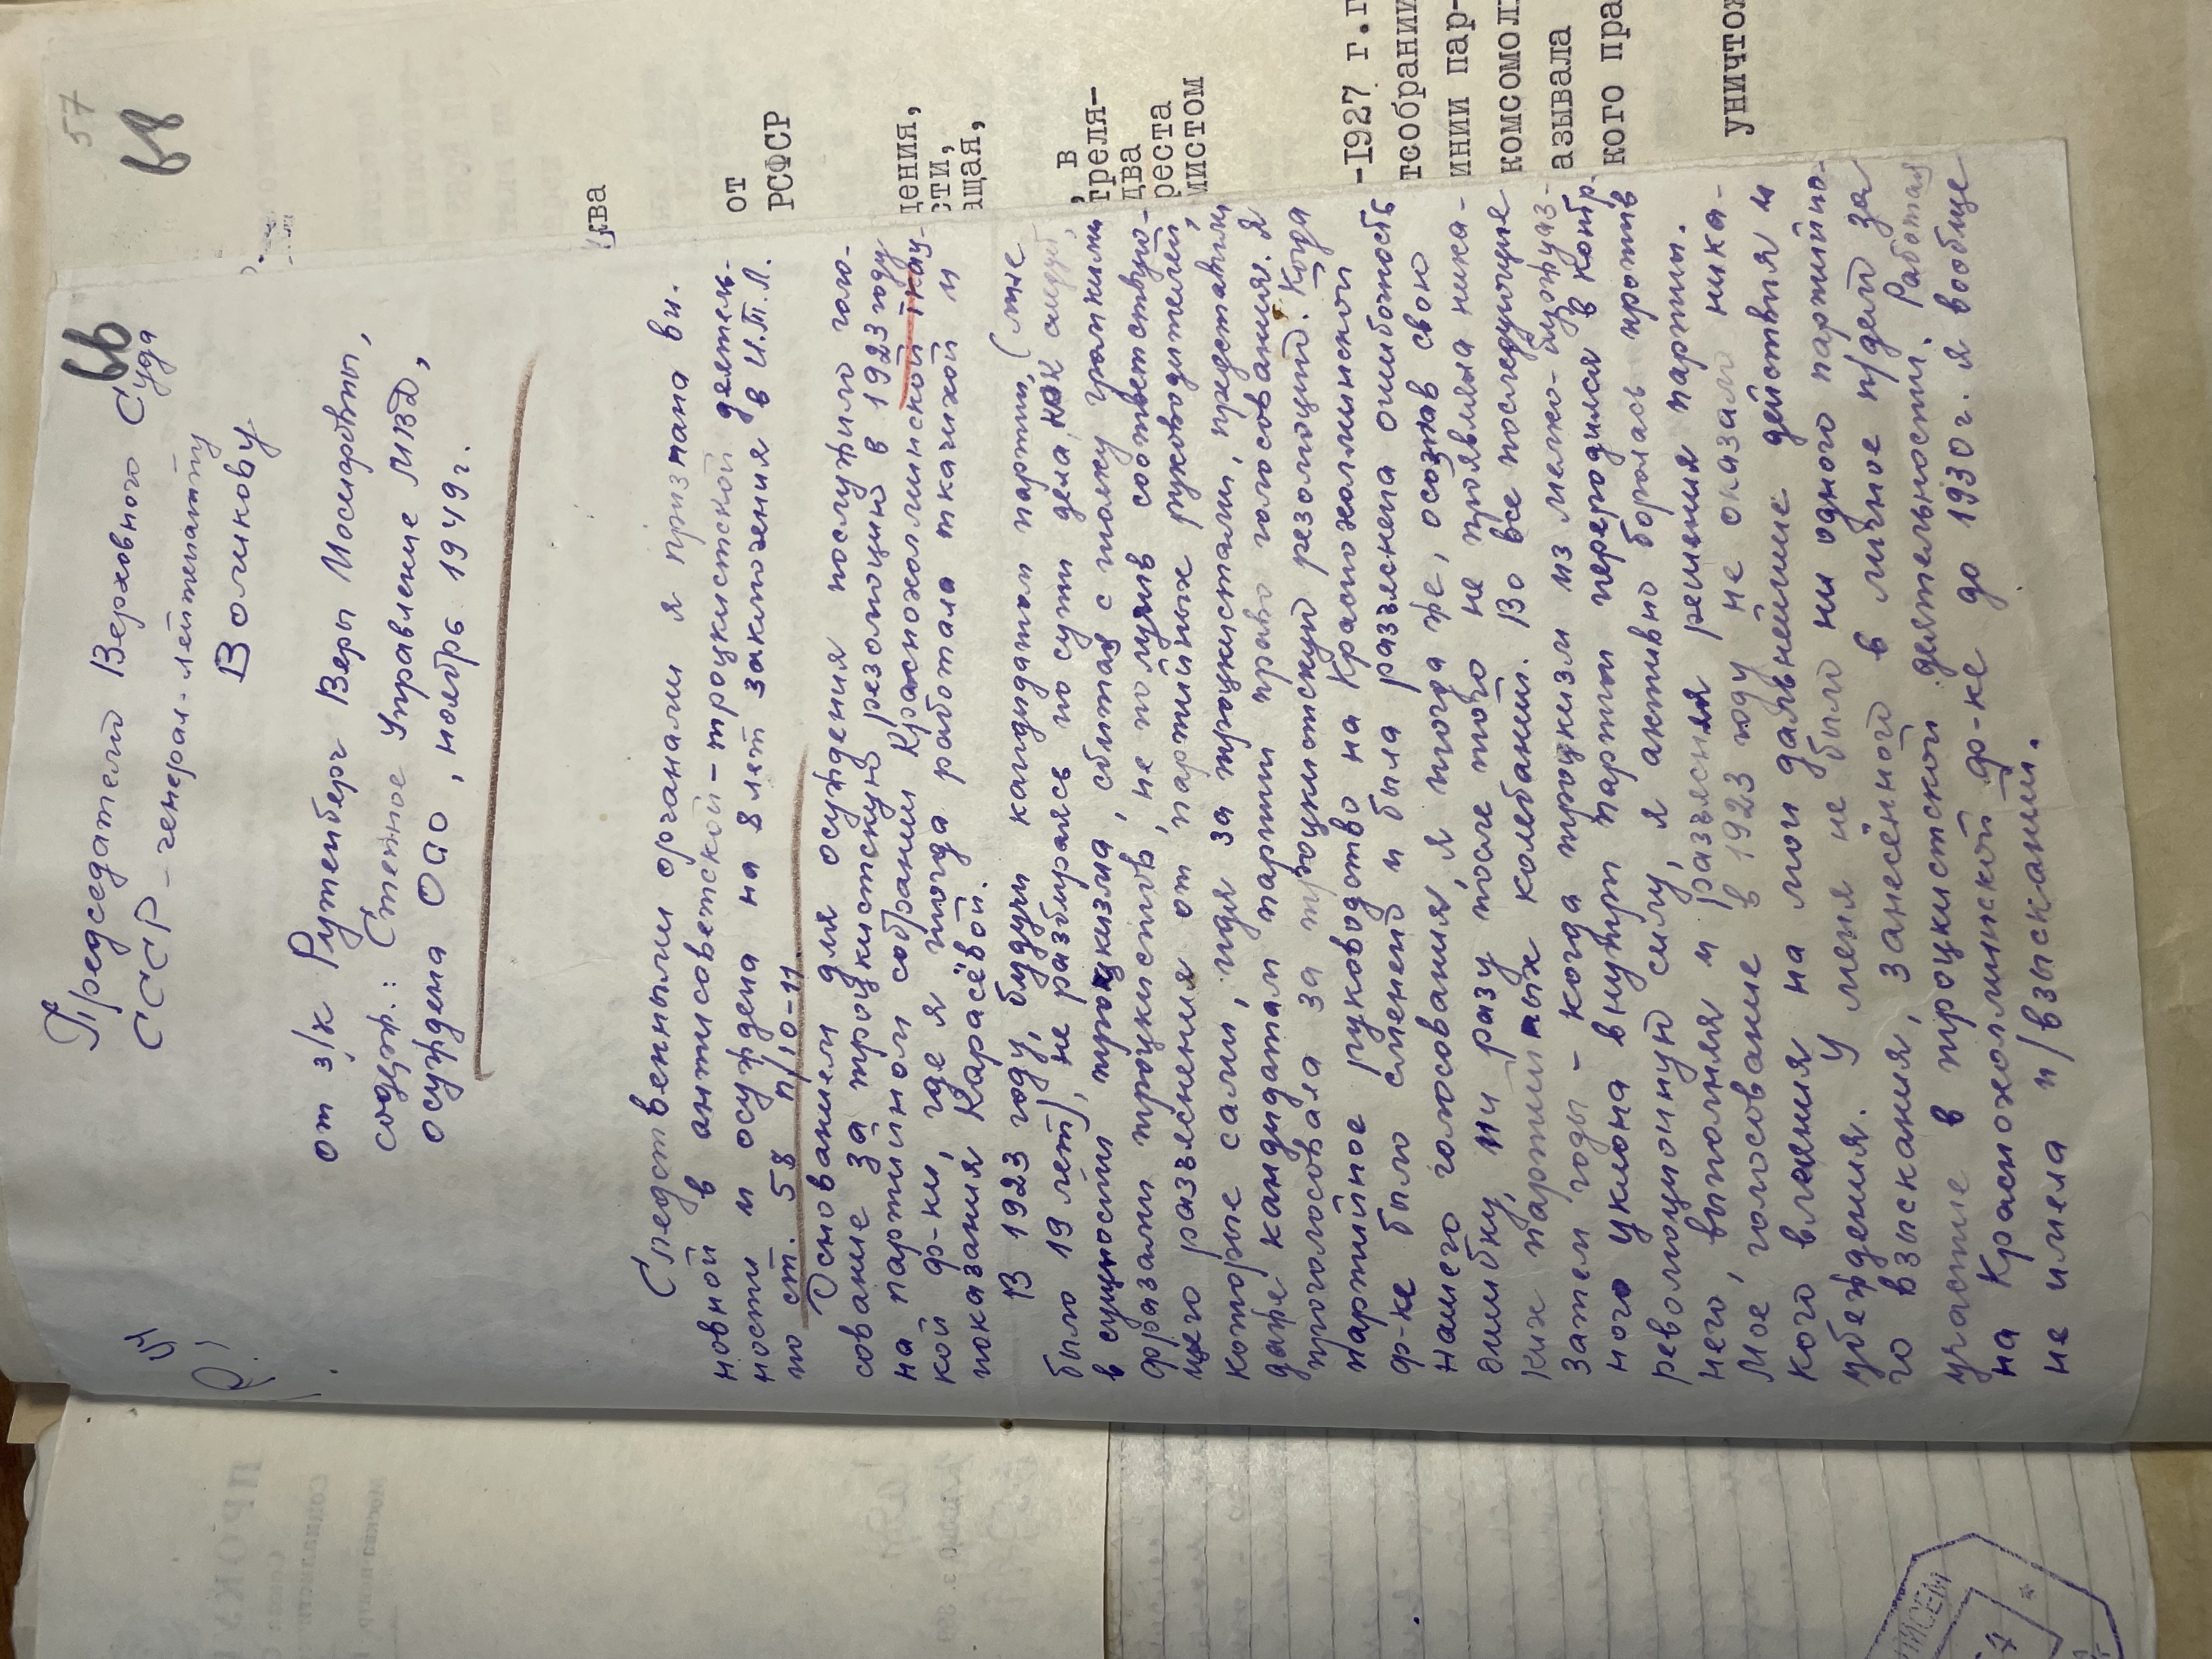 57
68
66
Председателю Верховного Суда
СССР – генерал-лейтенанту
Воликову
от з/к Рутенберг Веры Иосифовны,
содерж.: Степное Управление МВД,
осуждена ОСО, ноябрь 1949 г.
Следственными органами я признана ви-
новной в антисоветской – троцкистской деятель-
ности и осуждена на 8 лет заключения в И.Т.Л.
по ст. 58 п/10-11
Основанием для осуждения послужило голо-
сование за троцкистскую резолюцию в 1923 году
на партийном собрании Краснохолмской ткац-
кой ф-ки, где я тогда работала ткачихой и
показания Карасёвой.
В 1923 году, будучи кандидатом партии, (мне
было 19 лет), не разбираясь по сути дела, как
в сущности троцкизма, сбитая с толку громкими
фразами троцкистов, не получив соответствую-
щего разъяснения от партийных руководителей,
которые сами, идя за троцкистами, предоставили
даже кандидатам партии право голосования. Я
проголосовала за троцкистскую резолюцию. Когда
партийное руководство на Краснохолминской
ф-ке было сменено и была разъяснена ошибочность
нашего голосования, я тогда же, осознав свою
ошибку, ни разу после того не проявляла ника-
ких партийных колебаний. Во все последующие
затем годы – когда троцкизм из мелко-буржуаз-
ного уклона внутри партии переродился в контр-
революционную силу, я активно боролась против
него, выполняя и разъясняя решения партии.
Мое голосование в 1923 году не оказало ника-
кого влияния на мои дальнейшие действия и
убеждения. У меня не было ни одного партийно-
го взыскания, занесённого в личное п/дело за
участие в троцкистской деятельности. Работая
на Краснохолминской ф-ке до 1930 г. я вообще
не имела п/взысканий.
от
РСФСР
дения,
сти,
щая,
, в
треля-
два
реста
мистом
-1927 г.г
тсобрании
инии пар-
комсомол
азывала
кого пра
уничтож